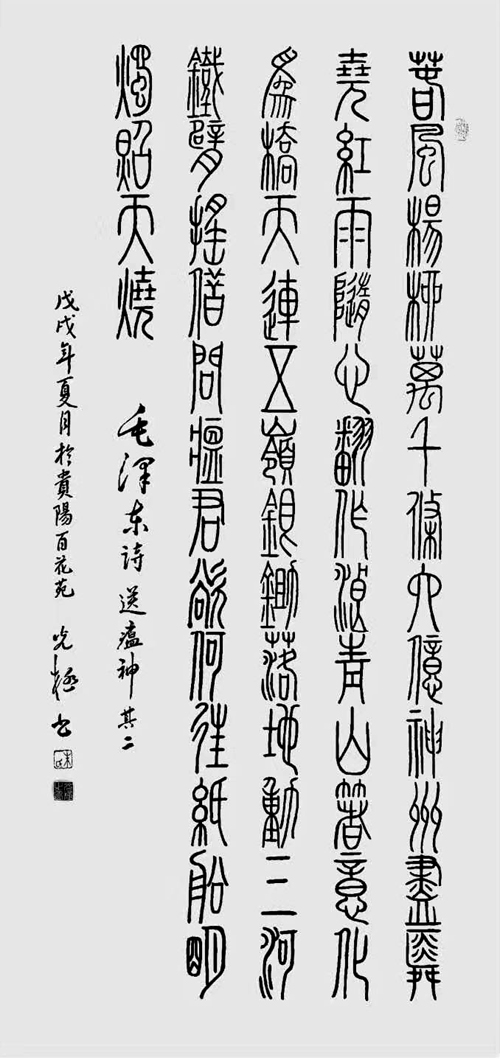 春風楊柳萬千條六億神州盡舜
堯紅雨隨心翻作浪青山箸意化
為橋天連五嶺銀鋤落地動三河
鐵臂搖借問瘟君欲何往紙船明
燭照天燒
毛澤东詩 送瘟神 其二
戊戌年夏月於貴陽百花苑 光極书